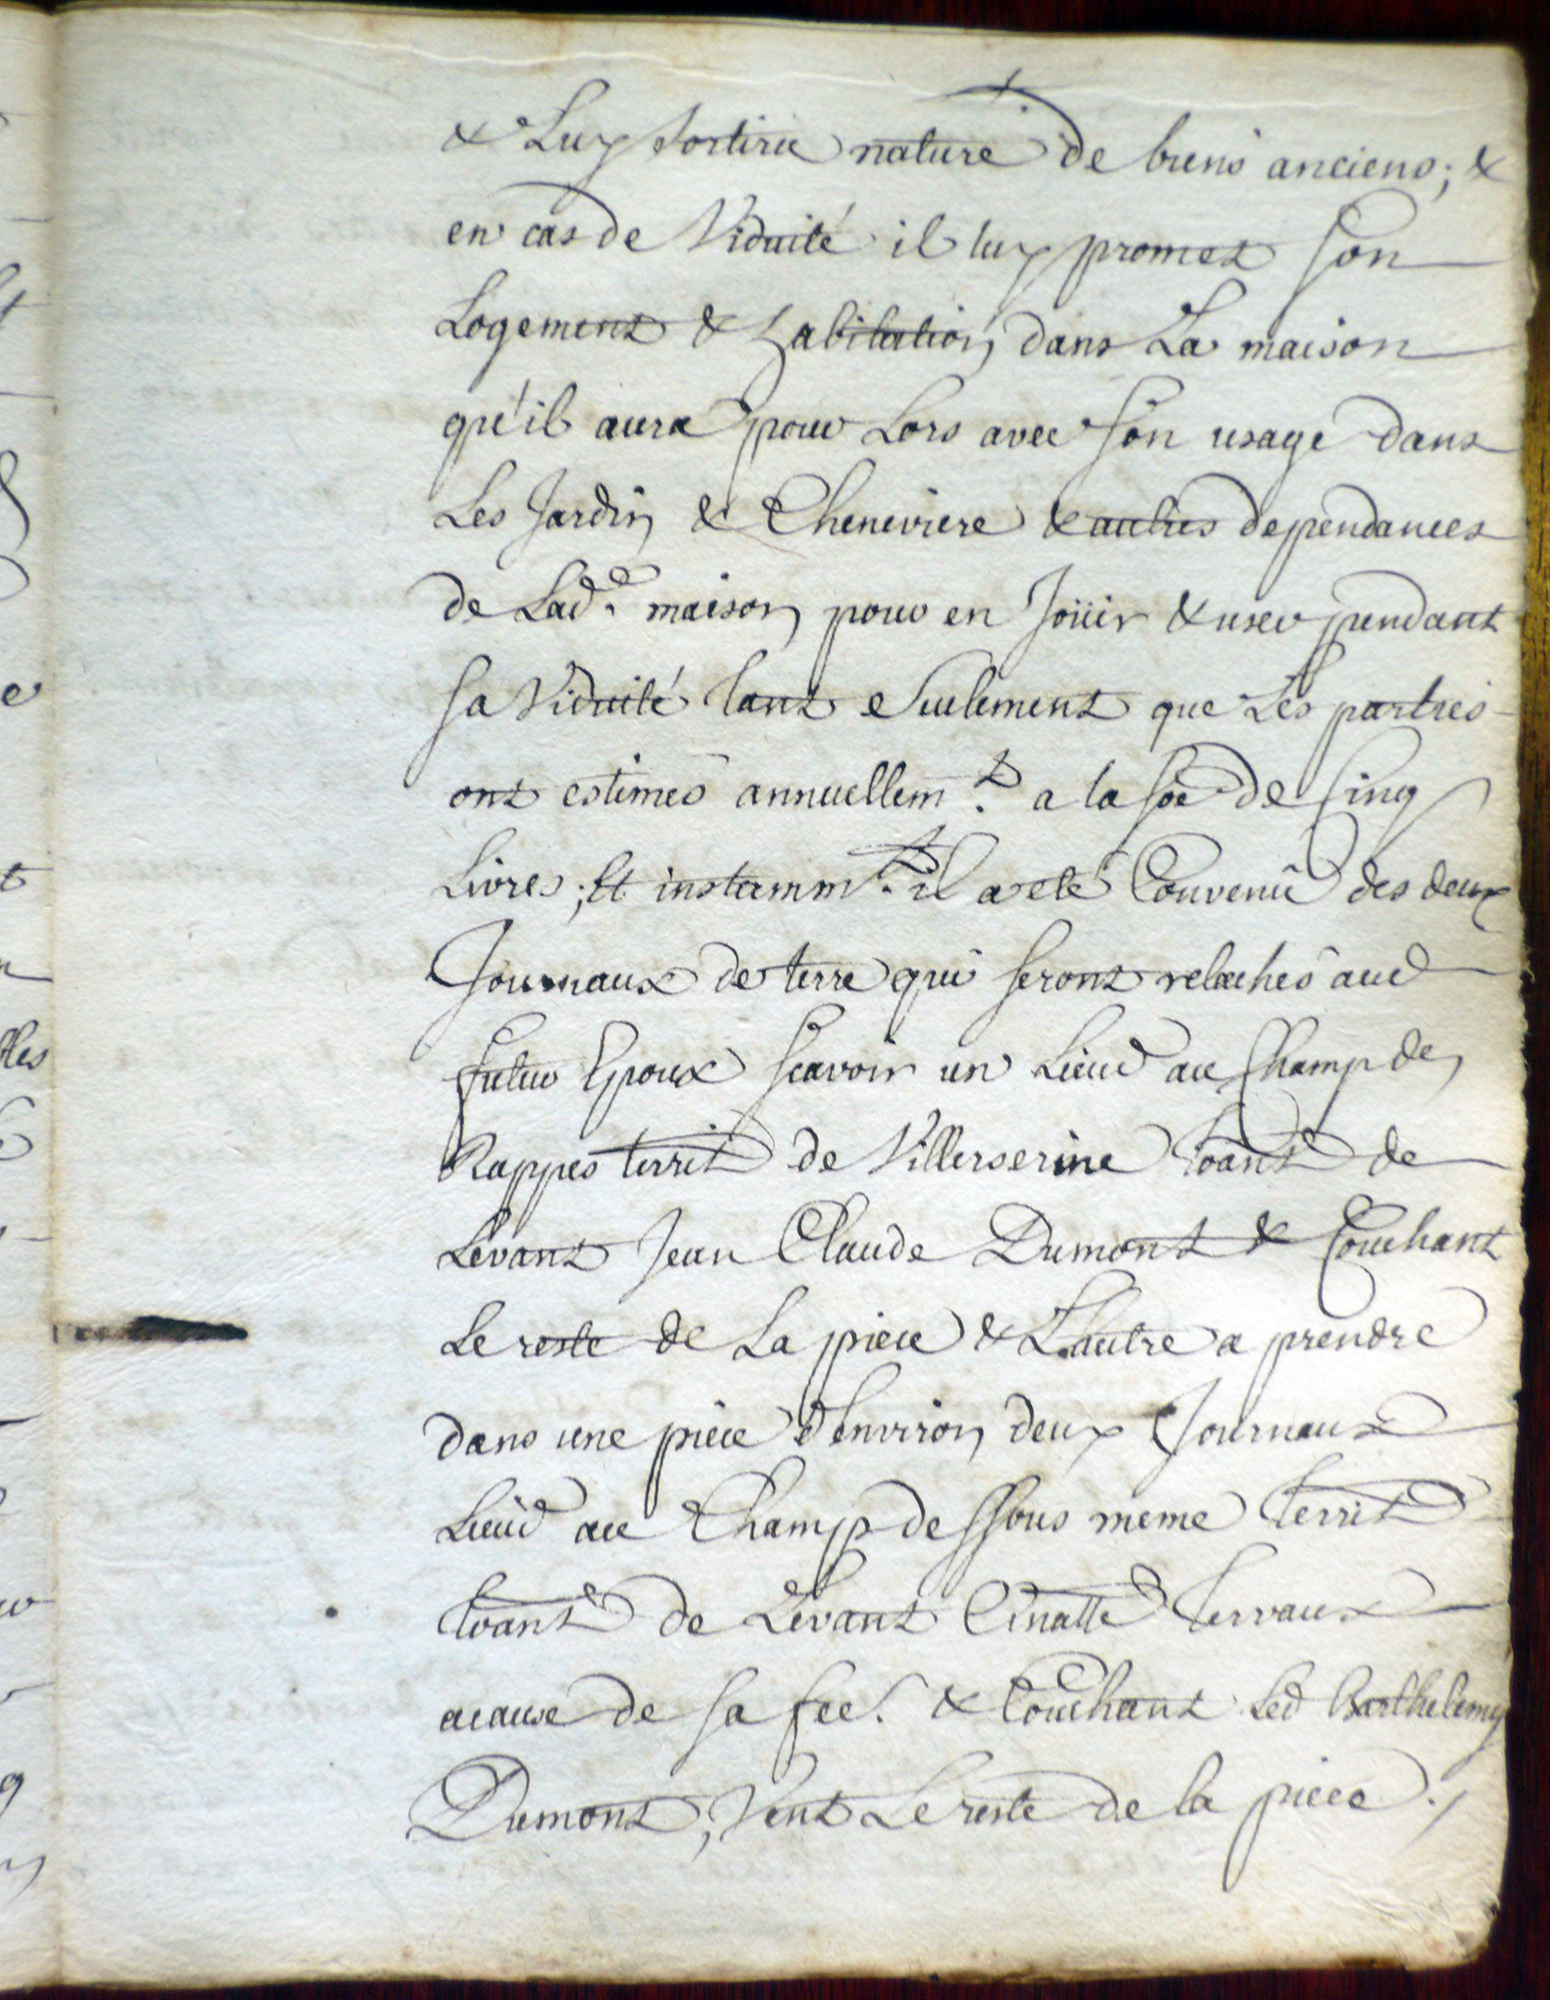 & Luy sortira nature de biens anciens; &
en cas de Viduité il luy promet son
Logement & habitation dans La maison
qu'il aura pour Lors avec son usage dans
Les Jardin & Cheneviere & autres dependances
de Lad.e maison pour en Joüir & user pendant
sa Viduité tant Seulement que Les parties
ont estimés annuellem.t a la soe de Cinq
Livres; Et instamm.t il a eté Convenû des deux
Journaux de terre qui seront relachés aud
futur Epoux scavoir un Lieud au Champ de
Rappes territ de Villerserine toant de
Levant Jean Claude Dumont & Couchant
Le reste de La piece & L'autre a prendre
dans une piece d'environ deux Journaux
Lieud au Champ dessous meme territ
toant de Levant Terraux
acause de sa fee. & Couchant Led Barthelemy
Dumont, Vent Le reste de la piece./